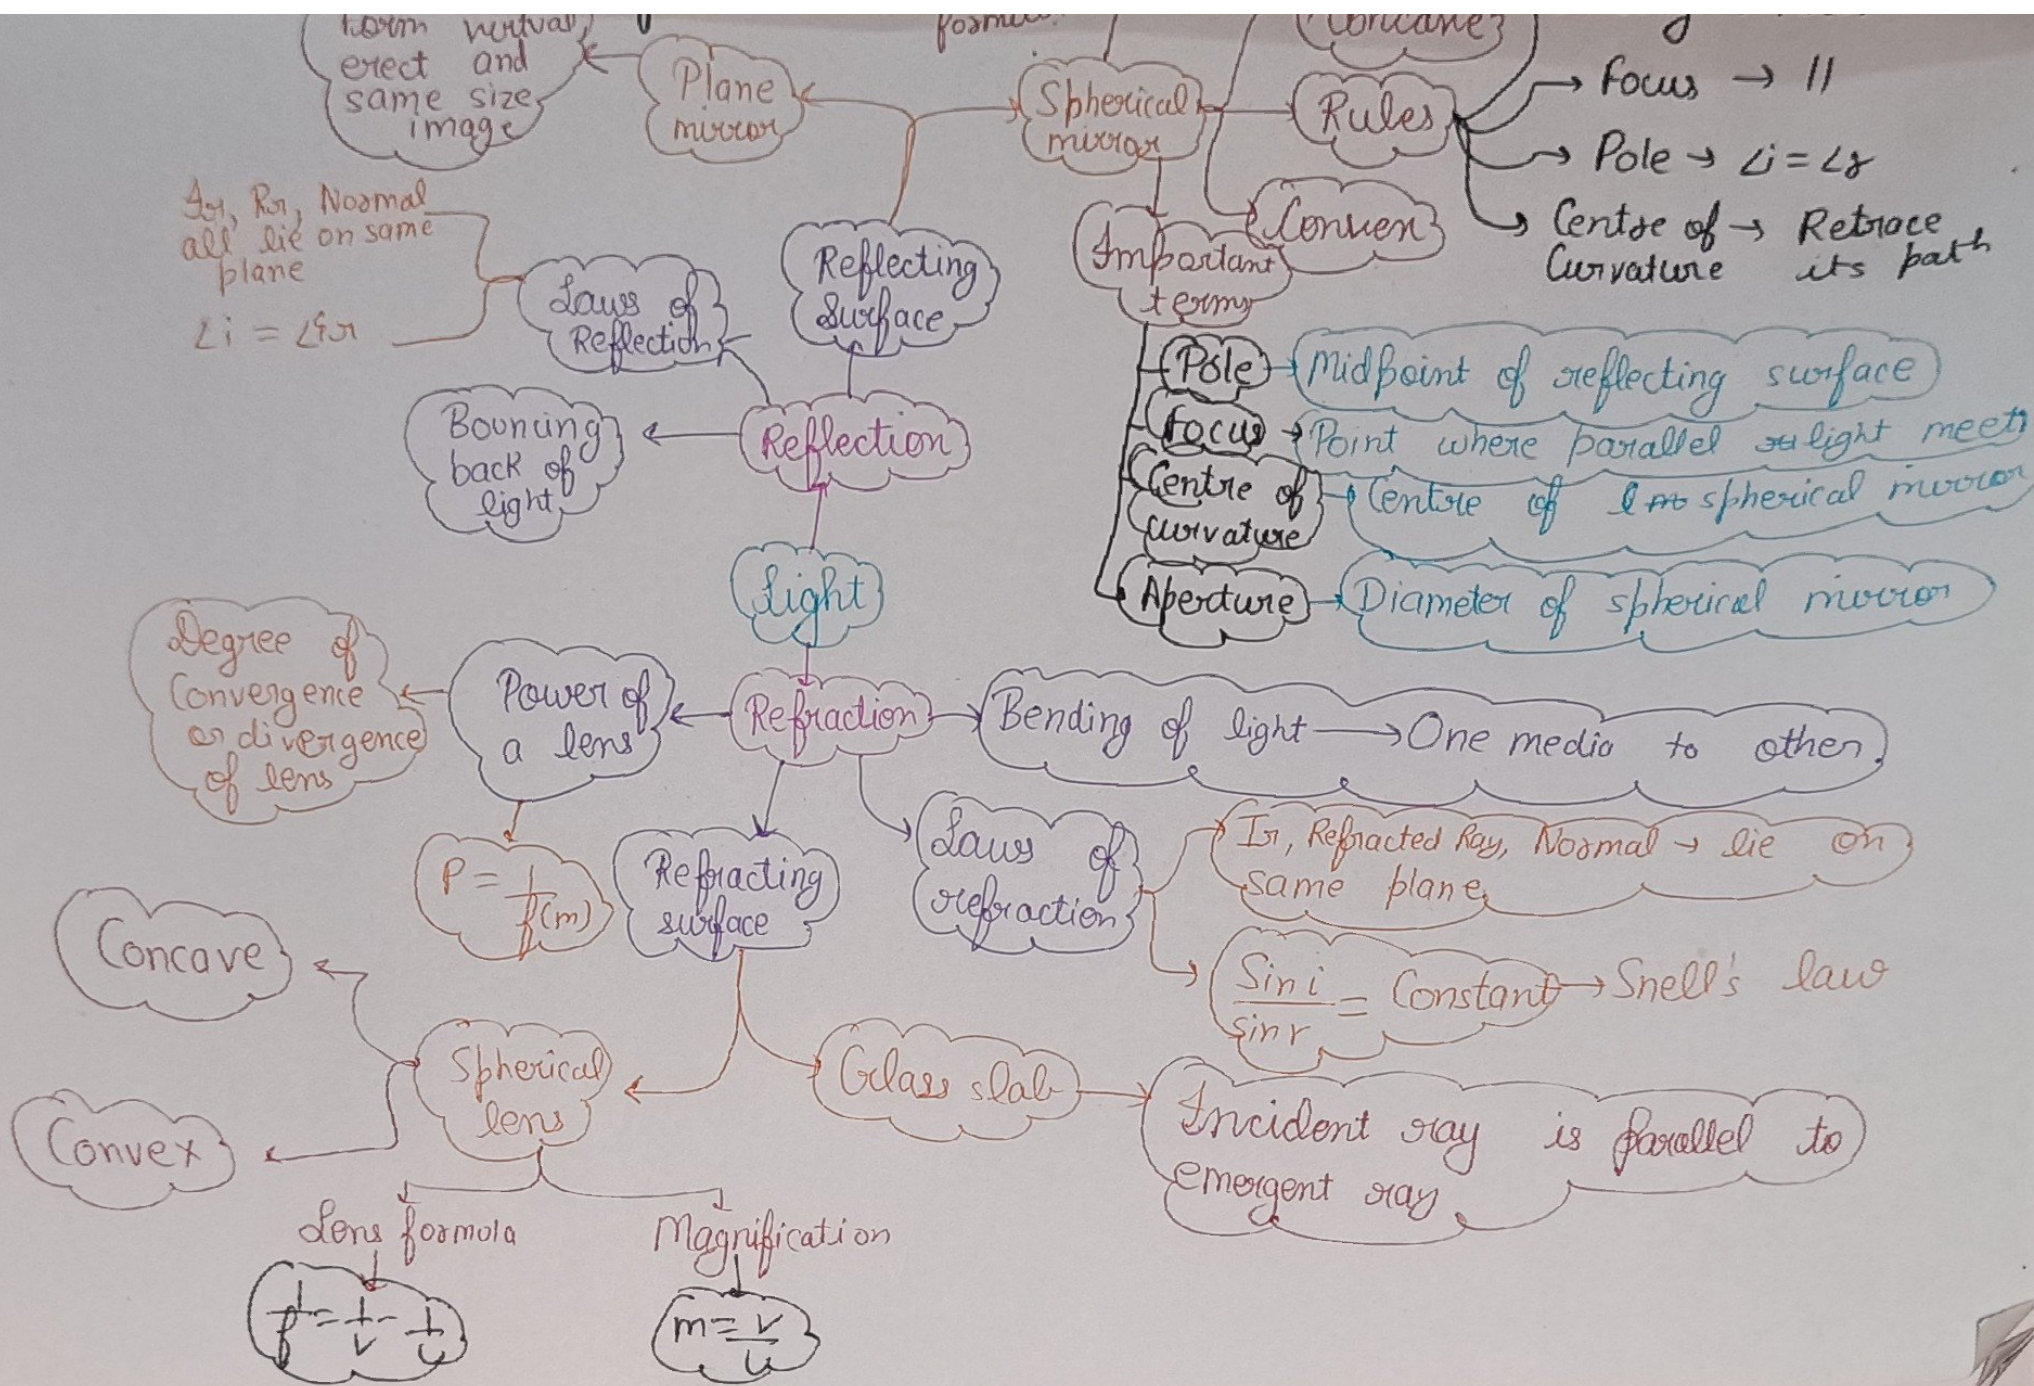 form virtual,
erect and
same size
image
Plane
mirror
Spherical
mirror
Concave
Rules
Focus → ||
Pole → ∠i = ∠r
Centre of → Retrace
Curvature its path
Convex
Important
terms
Ir, Rr, Normal
all lie on same
plane
∠i = ∠r
Laws of
Reflection
Reflecting
Surface
Pole → Midpoint of reflecting surface
Focus → Point where parallel light meet
Centre of → Centre of spherical mirror
curvature
Aperture → Diameter of spherical mirror
Bouncing
back of
light
Reflection
Light
Degree of
Convergence
or divergence
of lens
Power of
a lens
Refraction
Bending of light → One media to other
P = 1/f(m)
Refracting
surface
Laws of
refraction
Ir, Refracted Ray, Normal → lie on
same plane
Sin i / sin r = Constant → Snell's law
Concave
Convex
Spherical
lens
Glass slab
Incident ray is parallel to
emergent ray
Lens formula
1/f = 1/v - 1/u
Magnification
m = v/u